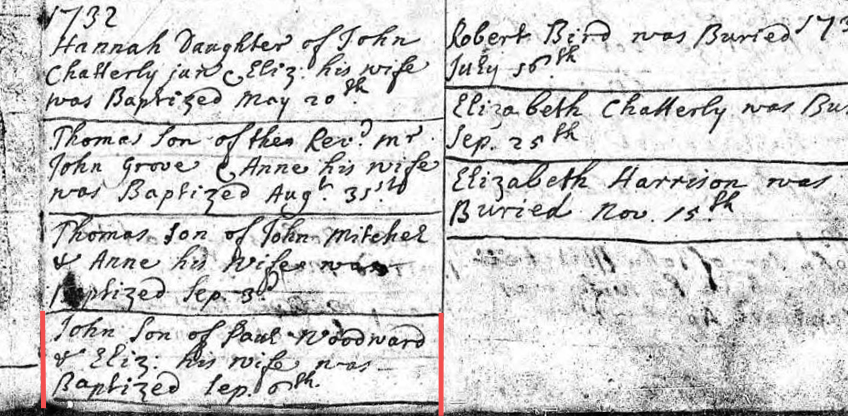 1732
Hannah Daughter of John
Chatterly jun & Eliz: his wife
was Baptized May 20th.
Thomas Son of the Revd. Mr.
John Grove & Anne his wife
was Baptized Augt. 31st
Thomas Son of John Mitchel
& Anne his Wife was
Baptized Sep. 3d
John Son of Paul Woodward
& Eliz: his wife was
Baptized Sep. 6th.
Robert Bird was Buried 173
July 16th
Elizabeth Chatterly was Bu
Sep. 25th
Elizabeth Harrison was
Buried Nov. 15th